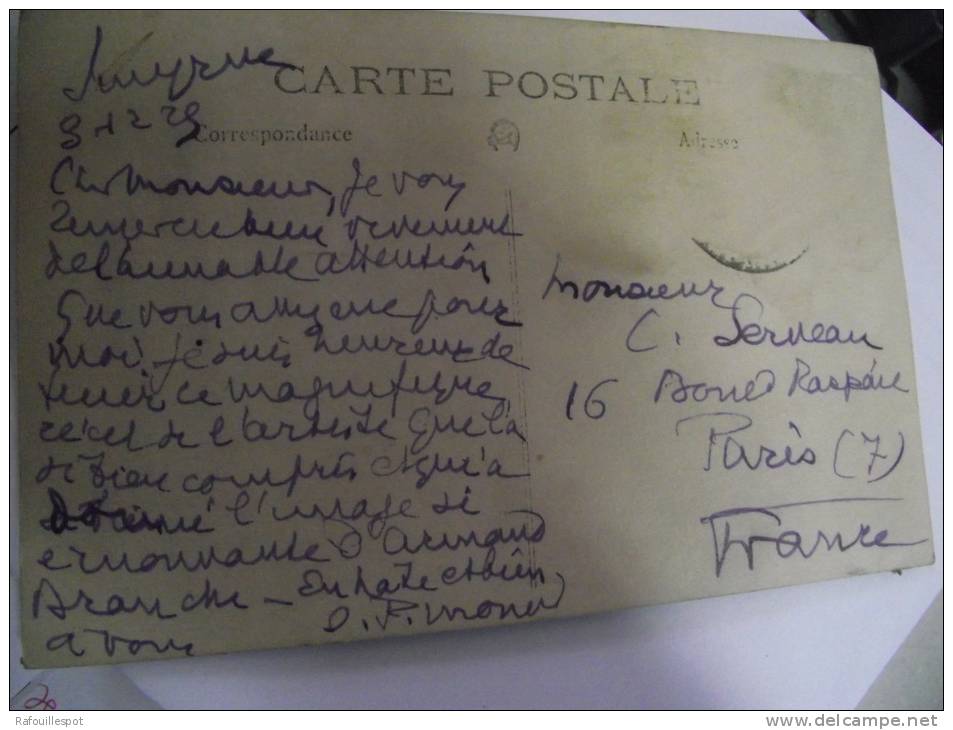 Smyrne
CARTE POSTALE
Correspondance
Adresse
Cher Monsieur, Je vous
remercie bien vivement
de l'aimable attention
que vous avez eue pour
moi. Je suis heureux de
tenir ce magnifique
récit de l'artiste qui l'a
si bien compris et qui a
l'image si
émouvante d'Armand
En hâte et bien
à vous
Monsieur
C. Serveau
16 Boul Raspail
Paris (7)
France
Rafouillespot
www.delcampe.net